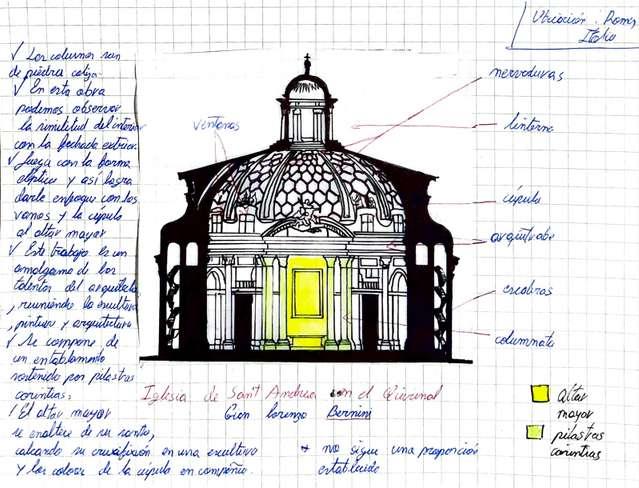 Ubicación: Roma,
Italia
✓ Las columnas son
de piedra caliza.
✓ En esta obra
podemos observar
la similitud del interior
con la fachada exterior.
✓ Juega con la forma
elíptica y así logra
darle enfoque con los
vanos y la cúpula
al altar mayor
✓ Este trabajo es un
amalgama de los
talentos del arquitecto
, reuniendo la escultura
, pintura y arquitectura
✓ Se compone de
un entablamento
sostenido por pilastras
corintias.
El altar mayor
se enaltece de su santo,
su crucifixión en una escultura
y los colores de la cúpula en
ventanas
nervaduras
linterna
cúpula
arquitrabe
columnata
Iglesia de Sant'Andrea en el Quirinal
Gian Lorenzo Bernini
* no sigue una proporción
establecida
altar
mayor
pilastras
corintias